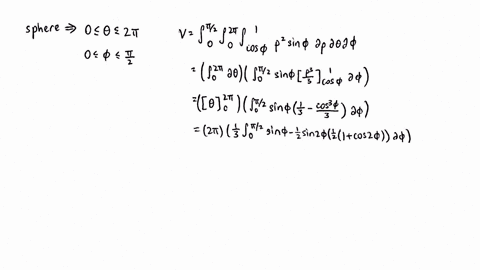 sphere ⇒ 0 ≤ θ ≤ 2π
0 ≤ ϕ ≤ π/2
V = ∫₀^{π/2} ∫₀^{2π} ∫_{cosϕ}^{1} ρ² sinϕ ∂ρ ∂θ ∂ϕ
= (∫₀^{2π} ∂θ) (∫₀^{π/2} sinϕ [ρ³/3]_{cosϕ}^{1} ∂ϕ)
= ([θ]₀^{2π}) (∫₀^{π/2} sinϕ (1/3 - cos³ϕ/3) ∂ϕ)
= (2π) (1/3 ∫₀^{π/2} sinϕ - 1/2 sin2ϕ (1/2 (1 + cos2ϕ)) ∂ϕ)